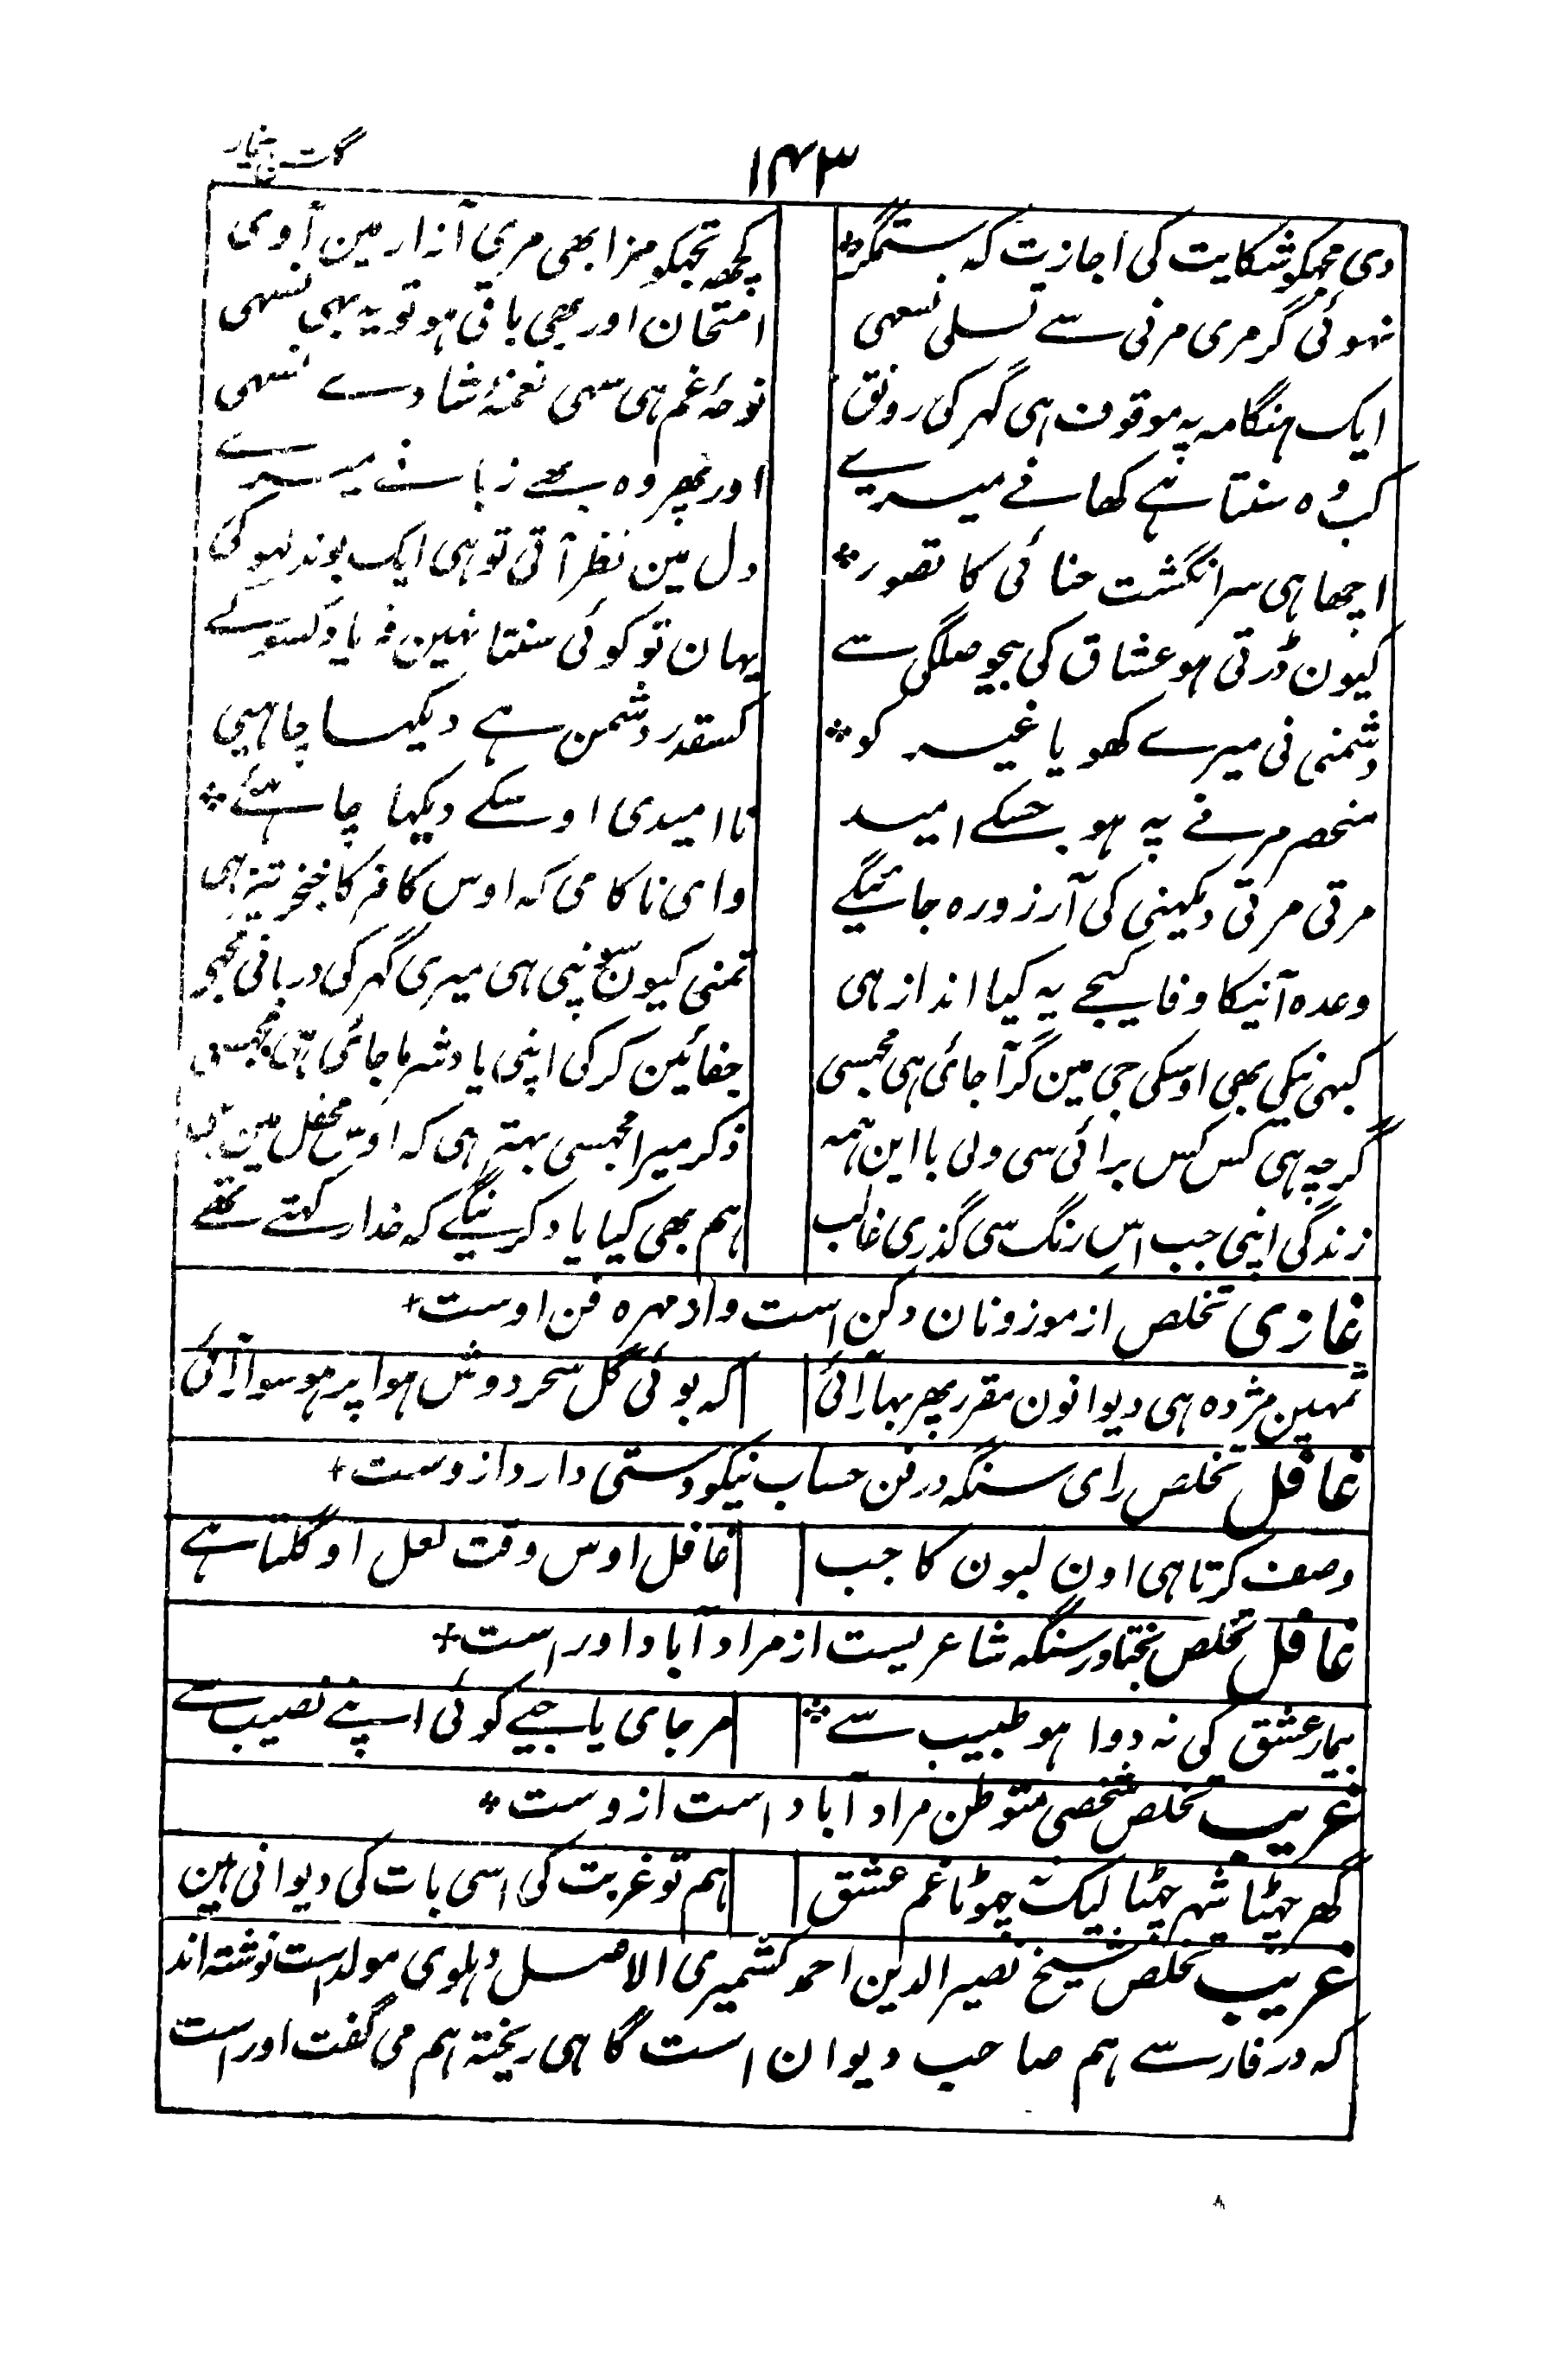 ۱۴۳
دی مجھکو شکایت کی اجازت کہ ستمگر کچھ تجھکو مزا بھی مری آزار مین آوی
نہوئی گر مری مرنی سے تسلی نسہی امتحان اور بھی باقی ہو تو یہ بہی نسہی
ایک ہنگامہ پہ موقوف ہی گہر کی رونق نوحۂ غم ہی سہی نغمۂ شادے نسہی
کب وہ سنتا ہے کھانے میریے اور پھر وہ بھے زبانے میرے
اچھا ہی سر انگشت حنائی کا تصور دل مین نظر آتی تو ہی ایک بوند لہو کی
کیون ڈرتی ہو عشاق کی بیحوصلگی سے یہان تو کوئی سنتا نہین فریاد کسو کے
دشمنی نی میرے کھویا غیر کو کسقدر دشمن ہے دیکہا چاہیی
منحصر مرنے پہ ہو جسکے امید نا امیدی اوسکے دیکہا چاہئے
مرتی مرتی دیکہنی کی آرزو رہ جائیگے وای ناکامی کہ اوس کافر کا خنجر تیز ہی
وعدہ آنیکا وفا کیجے یہ کیا انداز ہی تمنی کیون سونپی ہی میری گہر کی دربانی مجھے
کبہی نیکی بھی اوسکی جی مین گر آجائی ہی مجہسی جفائین کر کی اپنی یاد شرما جائی ہی مجہسی
گرچہ ہی کس کس برائی سی ولی با این ہمہ ذکر میرا مجہسی بہتر ہی کہ اوس محفل مین ہے
زندگی اپنی جب اس رنگ سی گذری غالب ہم بھی کیا یاد کرینگے کہ خدا رکہتے تھے
غازی تخلص از موزونان دکن است واد مہرہ فن اوست
تمہین مژدہ ہی دیوانون مقرر پھر بہار آئی کہ بوئی گل سحر دوش ہوا پر ہو سوار آئی
غافل تخلص رای سنگہ در فن حساب نیکو دستی دارد ازوست
وصف کرتا ہی اون لبون کا جب غافل اوس وقت لعل اوگلتا ہے
غافل تخلص بختاور سنگہ شاعریست از مراد آباد اوراست
بیمار عشق کی نہ دوا ہو طبیب سے مر جای یا جیے کوئی اپنے نصیب سے
غریب تخلص شخصی متوطن مراد آباد است ازوست
گھر چہٹا شہر چہٹا لیک نہ چہوٹا غم عشق ہم تو غربت کی اسی بات کی دیوانی ہین
غریب تخلص شیخ نصیر الدین احمد کشمیری الاصل دہلوی مولد است نوشتہ اند
کہ در فارسے ہم صاحب دیوان است گاہی ریختہ ہم می گفت اوراست